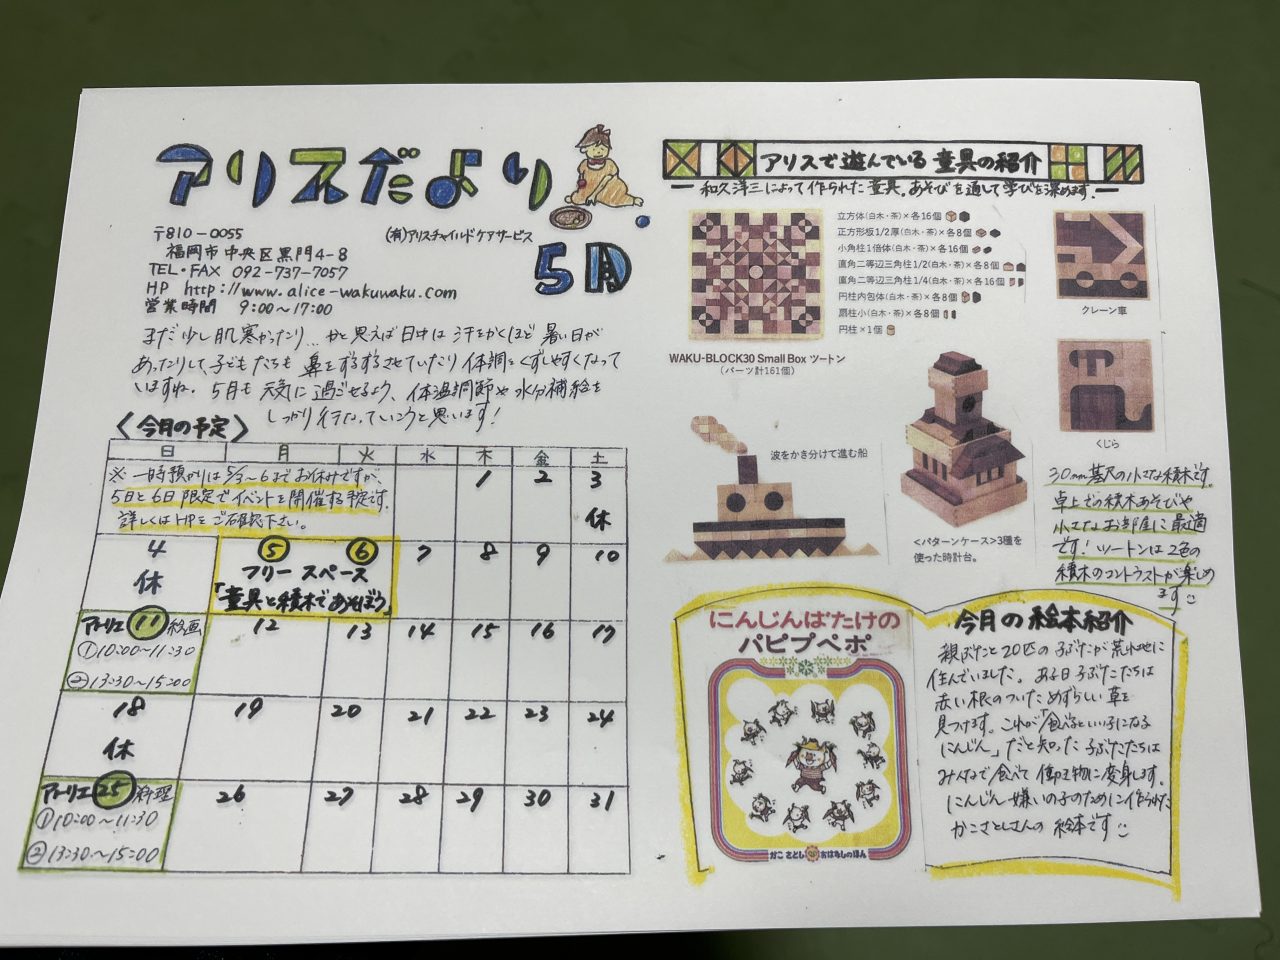 アリスだより
〒810-0055
(有)アリスチャイルドケアサービス
福岡市中央区黒門4-8
TEL・FAX 092-737-7057
HP http://www.alice-wakuwaku.com
営業時間 9:00~17:00
5月
まだ少し肌寒かったり…かと思えば日中は汗をかくほど暑い日が
あったりして、子どもたちも鼻をずるずるさせていたり体調をくずしやすくなって
いますね。5月も元気に過ごせるよう、体温調節や水分補給を
しっかり行なっていこうと思います!
〈今月の予定〉
日 月 火 水 木 金 土
※一時預かりは5/3~6までお休みですが、
5日と6日限定でイベントを開催する予定です。
詳しくはHPをご確認下さい。
1 2 3
休
4 5 6 7 8 9 10
休
フリースペース
「童具と積木であそぼう」
アトリエ 11 絵画 12 13 14 15 16 17
①10:00~11:30
②13:30~15:00
18 19 20 21 22 23 24
休
アトリエ 25 料理 26 27 28 29 30 31
①10:00~11:30
②13:30~15:00
アリスで遊んでいる童具の紹介
― 和久洋三によって作られた童具。あそびを通して学びを深めます。―
立方体(白木・茶)×各16個
正方形板1/2厚(白木・茶)×各8個
小角柱1倍体(白木・茶)×各16個
直角二等辺三角柱1/2(白木・茶)×各8個
直角二等辺三角柱1/4(白木・茶)×各16個
円柱内包体(白木・茶)×各8個
扇柱小(白木・茶)×各8個
円柱×1個
クレーン車
WAKU-BLOCK30 Small Box ツートン
(パーツ計161個)
くじら
波をかき分けて進む船
<パターンケース>3種を
使った時計台。
30mm基尺の小さな積木です。
卓上での積木あそびや
小さなお部屋に最適
です!ツートンは2色の
積木のコントラストが楽しめ
ます
にんじんばたけの
パピプペポ
かこ さとし おはなしのほん
今月の絵本紹介
親ぶたと20匹の子ぶたが荒れ地に
住んでいました。ある日子ぶたたちは
赤い根のついためずらしい草を
見つけます。これが「食べるといい子になる
にんじん」だと知った子ぶたたちは
みんなで食べて働き物に変身します。
にんじん嫌いの子のために作られた
かこさとしさんの絵本です